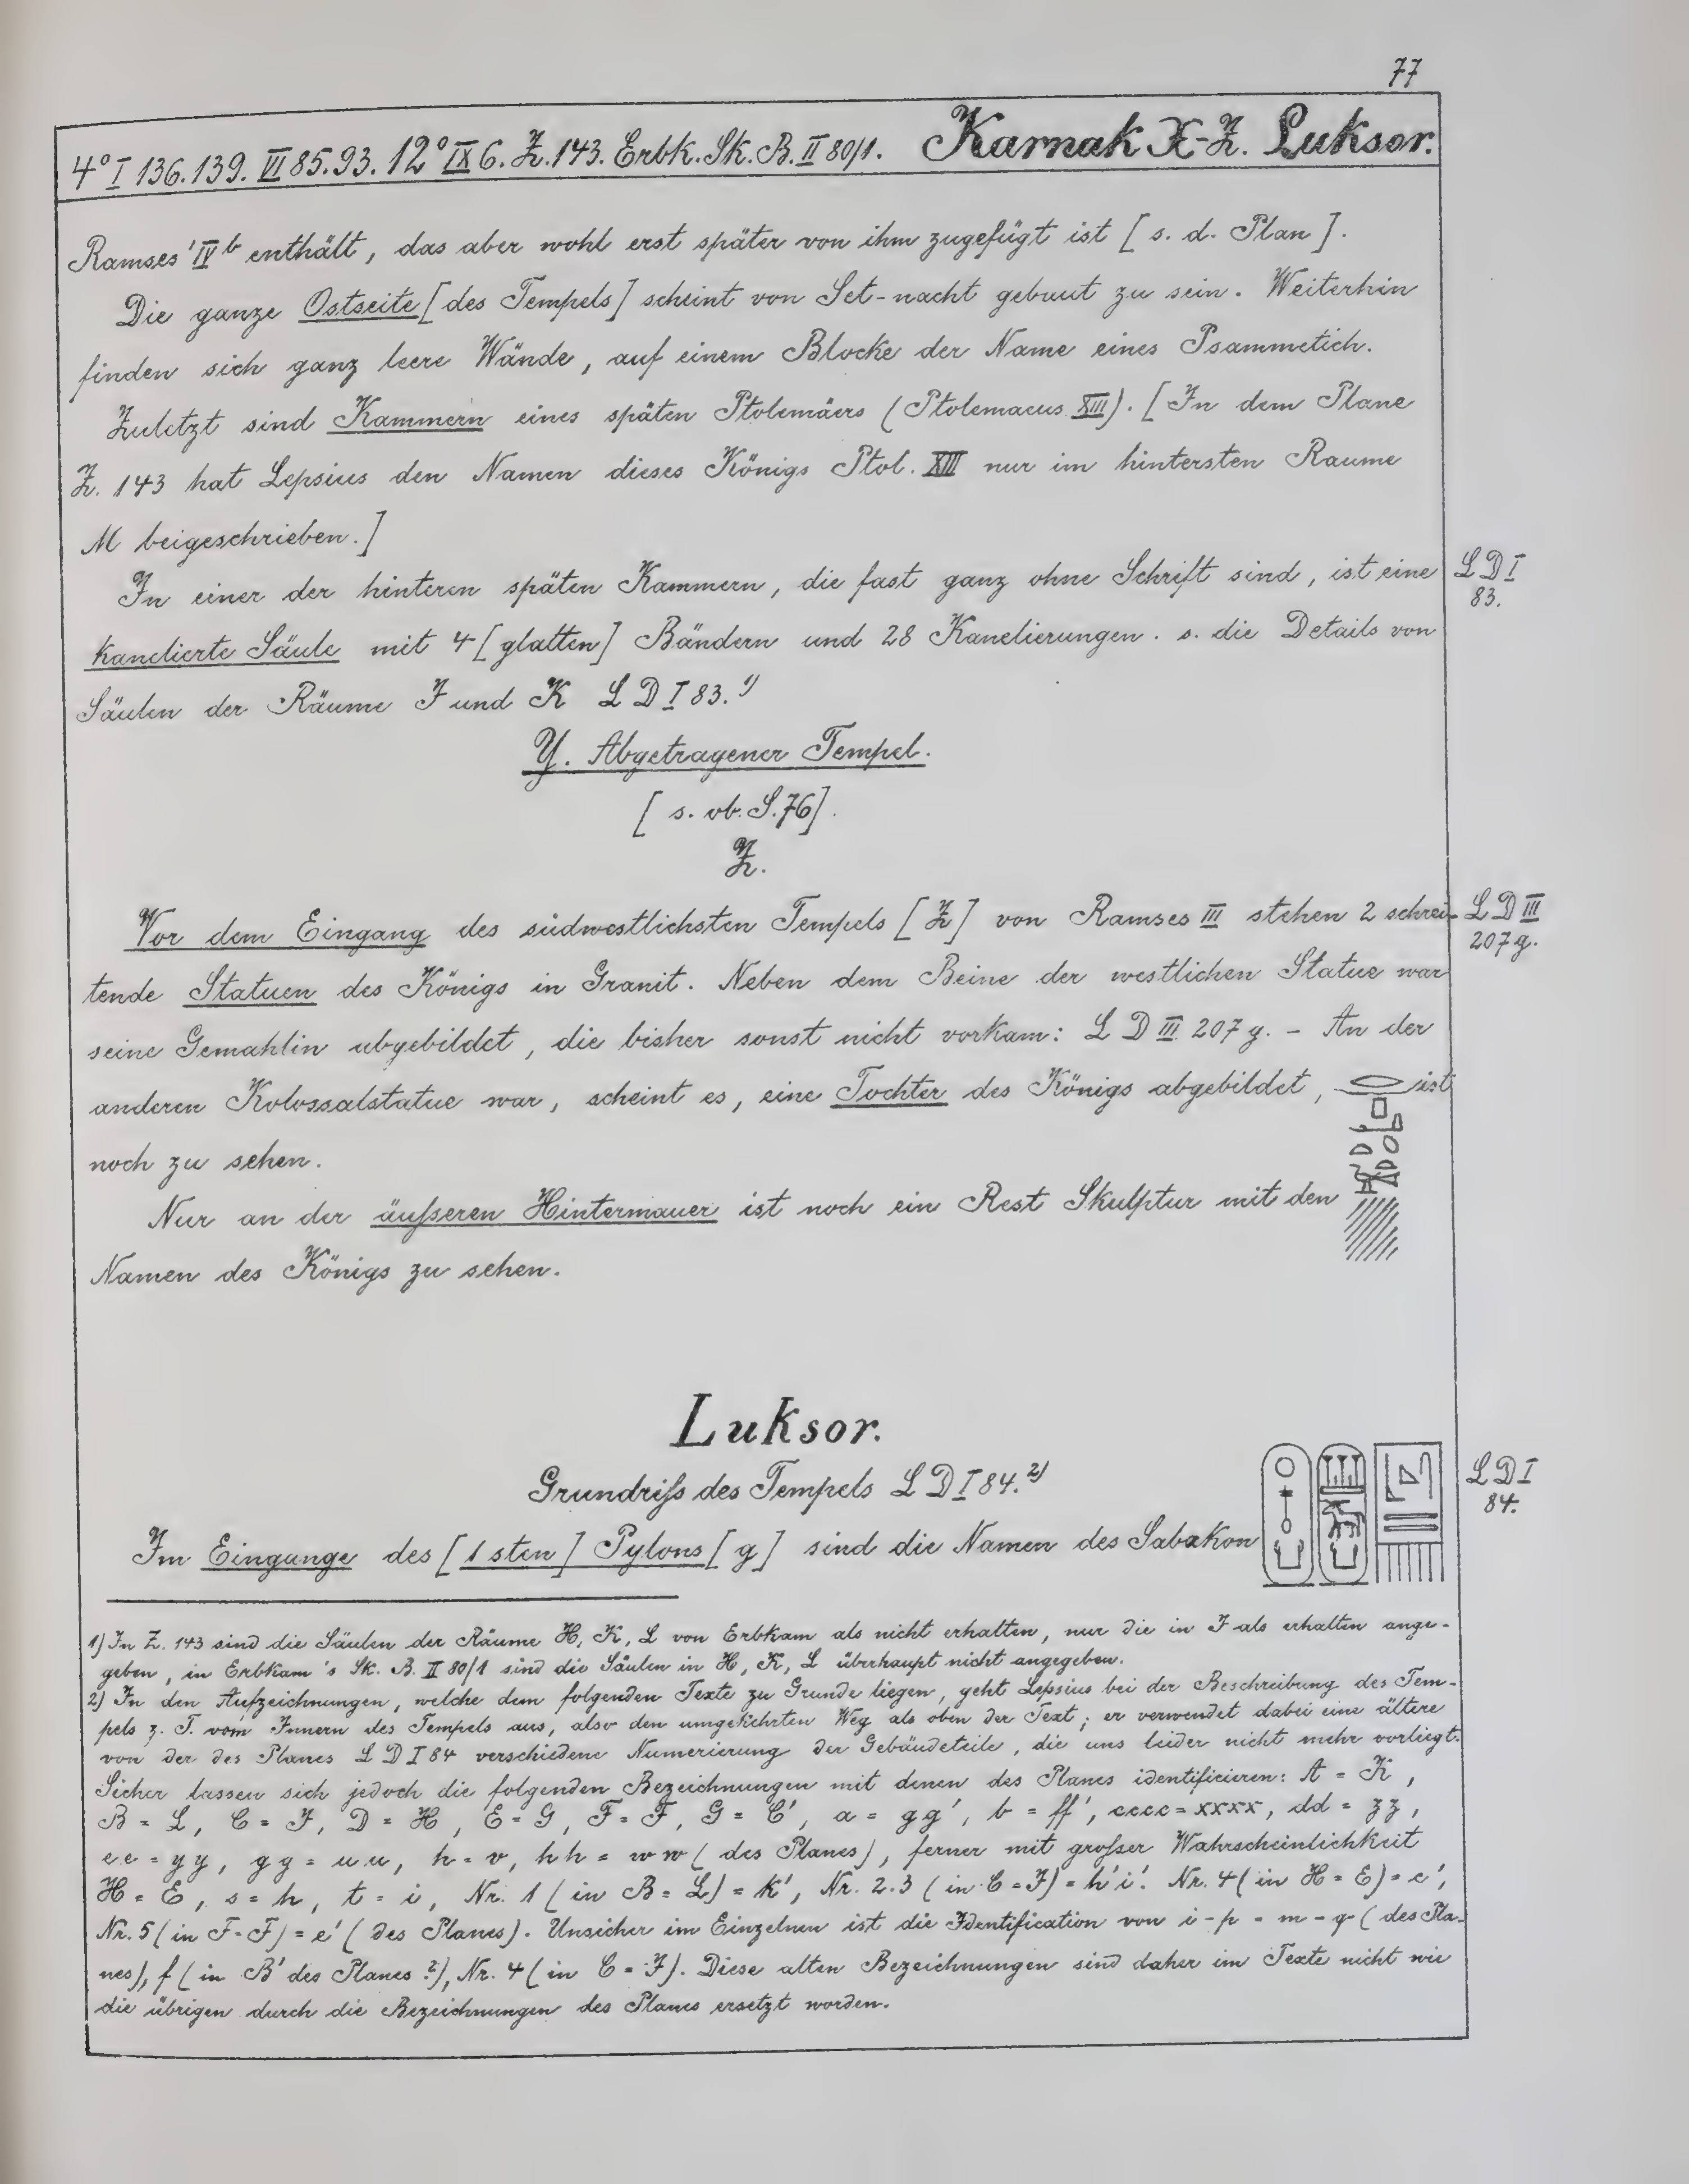 77
4° I 136. 139. VI 85. 93. 12° IX 6. Z. 143. Erbk. Sk. B. II 80/1. Karnak X-Z. Luksor.
Ramses' IV b enthält, das aber wohl erst später von ihm zugefügt ist [s. d. Plan].
Die ganze Ostseite [des Tempels] scheint von Set-nacht gebaut zu sein. Weiterhin
finden sich ganz leere Wände, auf einem Blocke der Name eines Psammetich.
Zuletzt sind Kammern eines späten Ptolemäers (Ptolemaeus XIII). [In dem Plane
Z. 143 hat Lepsius den Namen dieses Königs Ptol. XIII nur im hintersten Raume
M beigeschrieben.]
In einer der hinteren späten Kammern, die fast ganz ohne Schrift sind, ist eine
LD I
83.
kanelierte Säule mit 4 [glatten] Bändern und 28 Kanelierungen. s. die Details von
Säulen der Räume J und K LD I 83. 1)
Y. Abgetragener Tempel.
[s. ob. S. 76].
Z.
Vor dem Eingang des südwestlichsten Tempels [Z] von Ramses III stehen 2 schrei-
LD III
207 g.
tende Statuen des Königs in Granit. Neben dem Beine der westlichen Statue war
seine Gemahlin abgebildet, die bisher sonst nicht vorkam: LD III 207 g. - An der
anderen Kolossalstatue war, scheint es, eine Tochter des Königs abgebildet, ist
noch zu sehen.
Nur an der äußeren Hintermauer ist noch ein Rest Skulptur mit den
Namen des Königs zu sehen.
Luksor.
Grundriß des Tempels LD I 84. 2)
LD I
84.
Im Eingange des [1sten] Pylons [g] sind die Namen des Sabakon
1) In Z. 143 sind die Säulen der Räume H, K, L von Erbkam als nicht erhalten, nur die in J als erhalten ange-
geben, in Erbkam's Sk. B. II 80/1 sind die Säulen in H, K, L überhaupt nicht angegeben.
2) In den Aufzeichnungen, welche dem folgenden Texte zu Grunde liegen, geht Lepsius bei der Beschreibung des Tem-
pels z. T. vom Innern des Tempels aus, also den umgekehrten Weg als oben der Text; er verwendet dabei eine ältere
von der des Planes LD I 84 verschiedene Numerierung der Gebäudeteile, die uns leider nicht mehr vorliegt.
Sicher lassen sich jedoch die folgenden Bezeichnungen mit denen des Planes identificieren: A = K,
B = L, C = J, D = H, E = G, F = F, G = C', a = gg', b = ff', cccc = xxxx, dd = zz,
ee = yy, gg = uu, h = v, hh = ww (des Planes), ferner mit großer Wahrscheinlichkeit
H = E, s = h, t = i, Nr. 1 (in B = L) = k', Nr. 2.3 (in C = J) = h'i'. Nr. 4 (in H = E) = c',
Nr. 5 (in F = F) = e' (des Planes). Unsicher im Einzelnen ist die Identification von i - p = m - q (des Pla-
nes), f (in B' des Planes?), Nr. 4 (in C = J). Diese alten Bezeichnungen sind daher im Texte nicht wie
die übrigen durch die Bezeichnungen des Planes ersetzt worden.